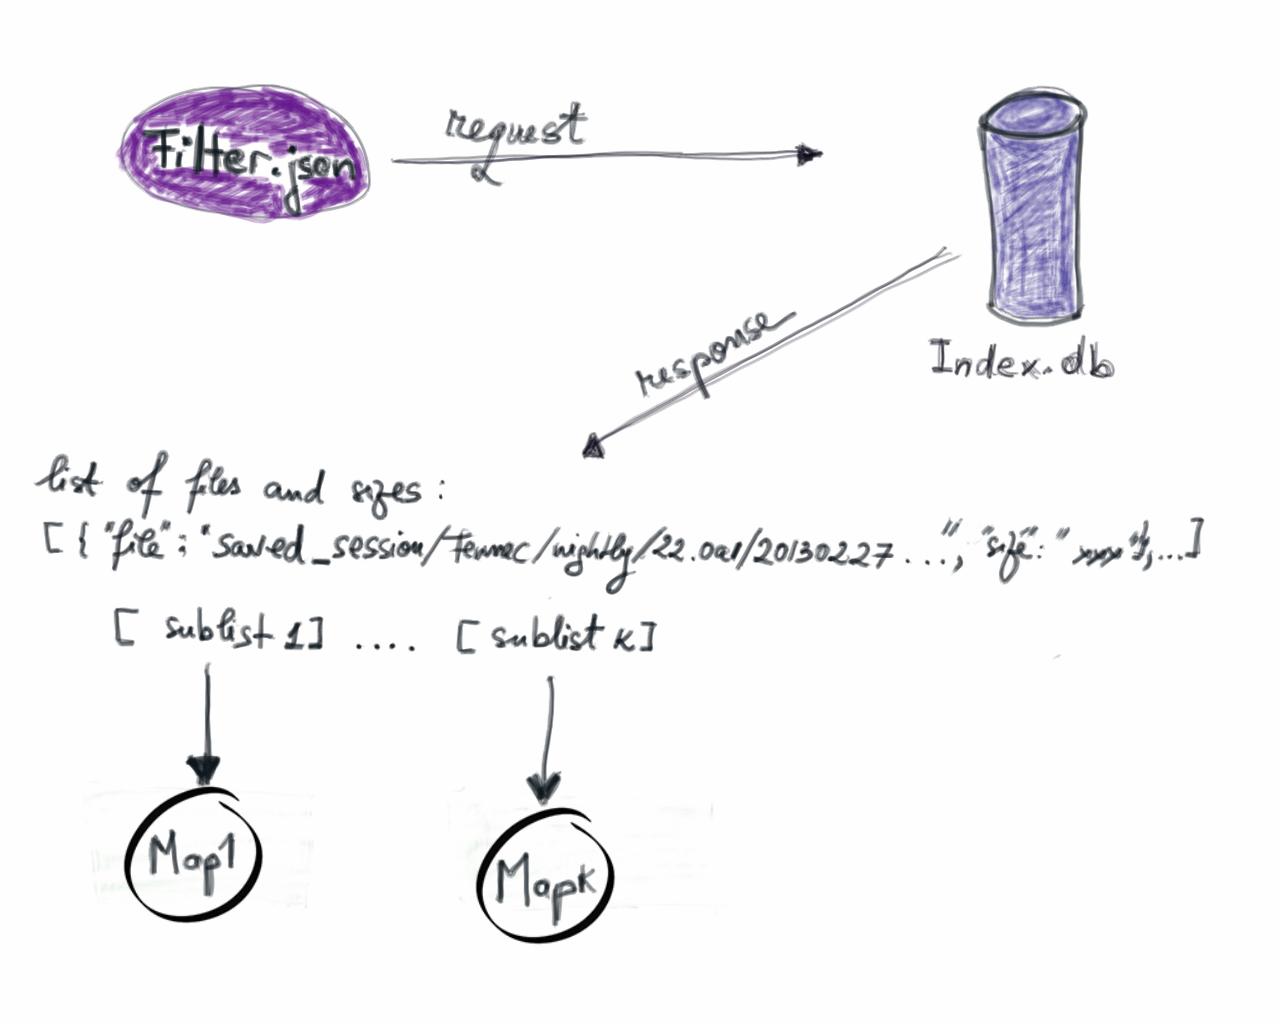 request
Filter.json
response
Index.db
list of files and sizes :
[ { "file" : "saved_session/Fennec/nightly/22.0a1/20130227 ....", "size" : " xxxx "}, ... ]
[ sublist 1 ] .... [ sublist K ]
Map1
MapK